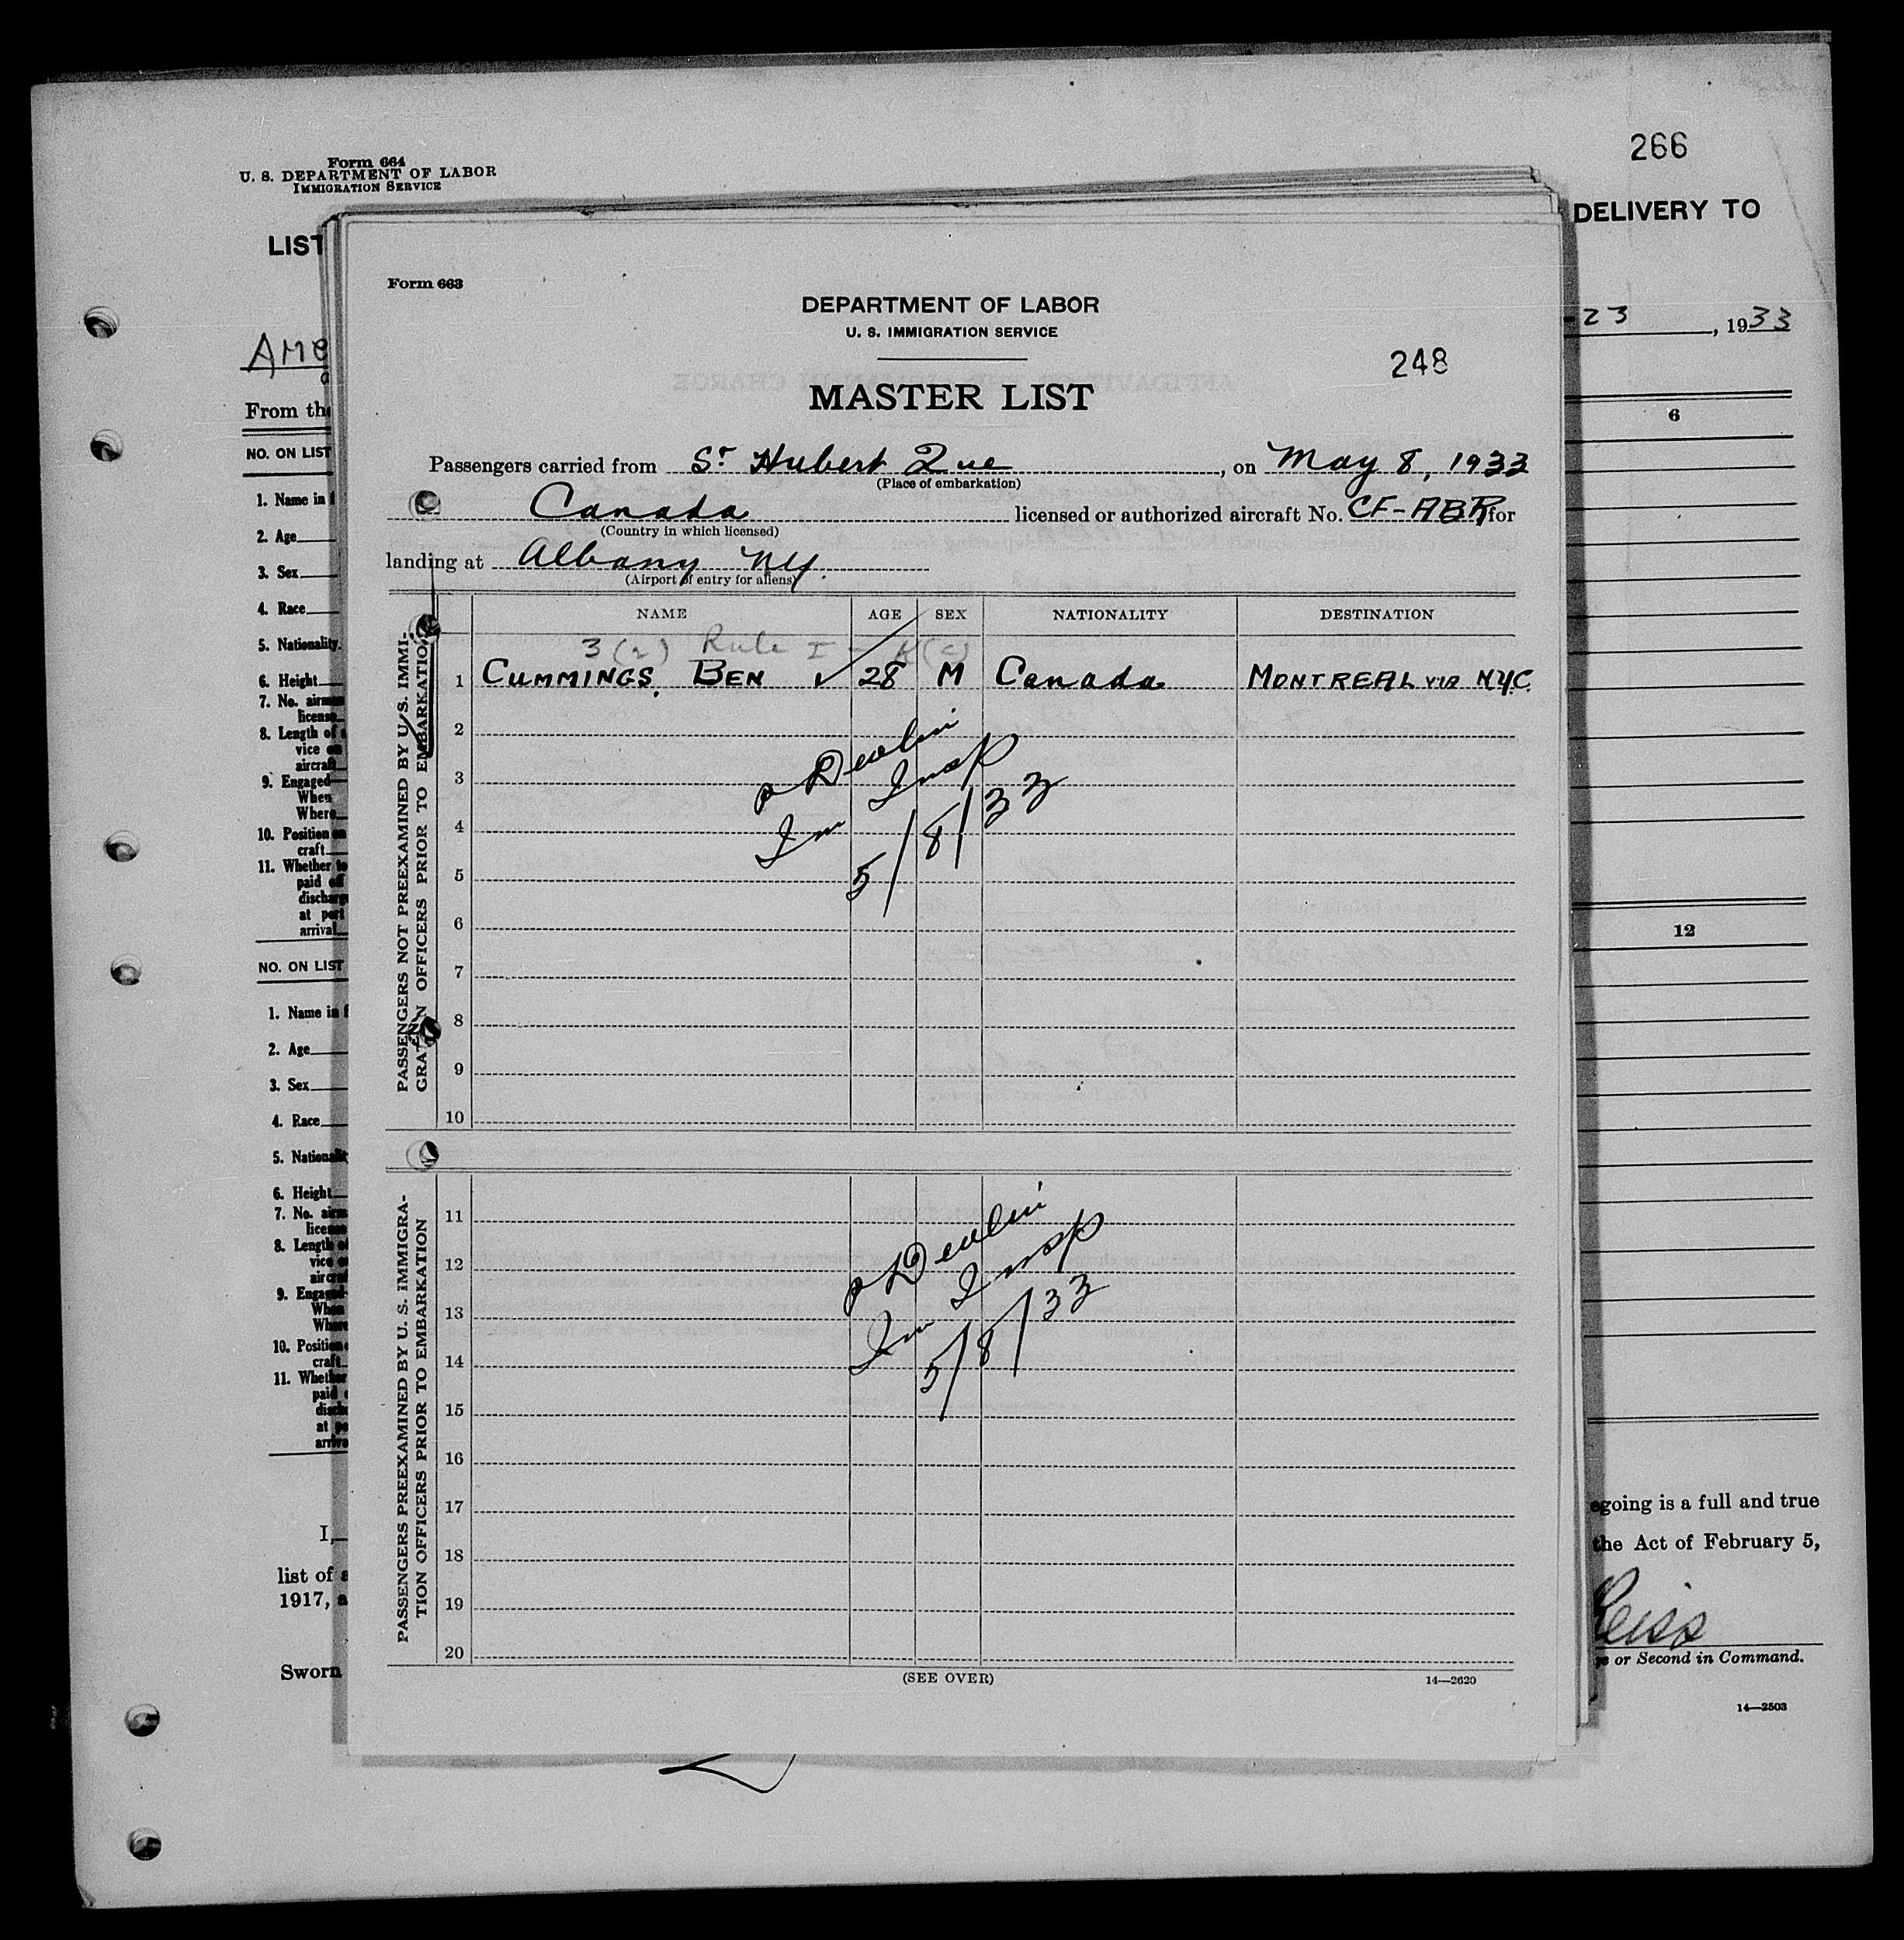 266
Form 664
U. S. DEPARTMENT OF LABOR
IMMIGRATION SERVICE
LIST
DELIVERY TO
23, 1933
AME
From the
NO. ON LIST
6
1. Name in f
2. Age
3. Sex
4. Race
5. Nationality
6. Height
7. No. airman
license
8. Length of
vice on
aircraft
9. Engaged
When
Where
10. Position on
craft
11. Whether to
paid off
discharg
at port
arrival
NO. ON LIST
12
1. Name in f
2. Age
3. Sex
4. Race
5. National
6. Height
7. No. airm
license
8. Length of
vice o
aircraf
9. Engaged
When
Where
10. Position
craft
11. Whether
paid
disch
at po
arriva
I,
egoing is a full and true
list of a
the Act of February 5,
1917, a
Reiss
Sworn
or Second in Command.
14—2503
Form 663
DEPARTMENT OF LABOR
U. S. IMMIGRATION SERVICE
248
MASTER LIST
Passengers carried from St Hubert Que, on May 8, 1933
(Place of embarkation)
Canada licensed or authorized aircraft No. CF-ABR for
(Country in which licensed)
landing at Albany NY.
(Airport of entry for aliens)
PASSENGERS NOT PREEXAMINED BY U. S. IMMI-
GRATION OFFICERS PRIOR TO EMBARKATION
NAME AGE SEX NATIONALITY DESTINATION
3(2) Rule I - K(c)
1 CUMMINGS, BEN ✓ 28 M Canada MONTREAL VIA N.Y.C.
2
3
4
5
6
7
8
9
10
Devlin
Im Insp
5/8/33
PASSENGERS PREEXAMINED BY U. S. IMMIGRA-
TION OFFICERS PRIOR TO EMBARKATION
11
12
13
14
15
16
17
18
19
20
Devlin
Im Insp
5/8/33
(SEE OVER)
14—2620